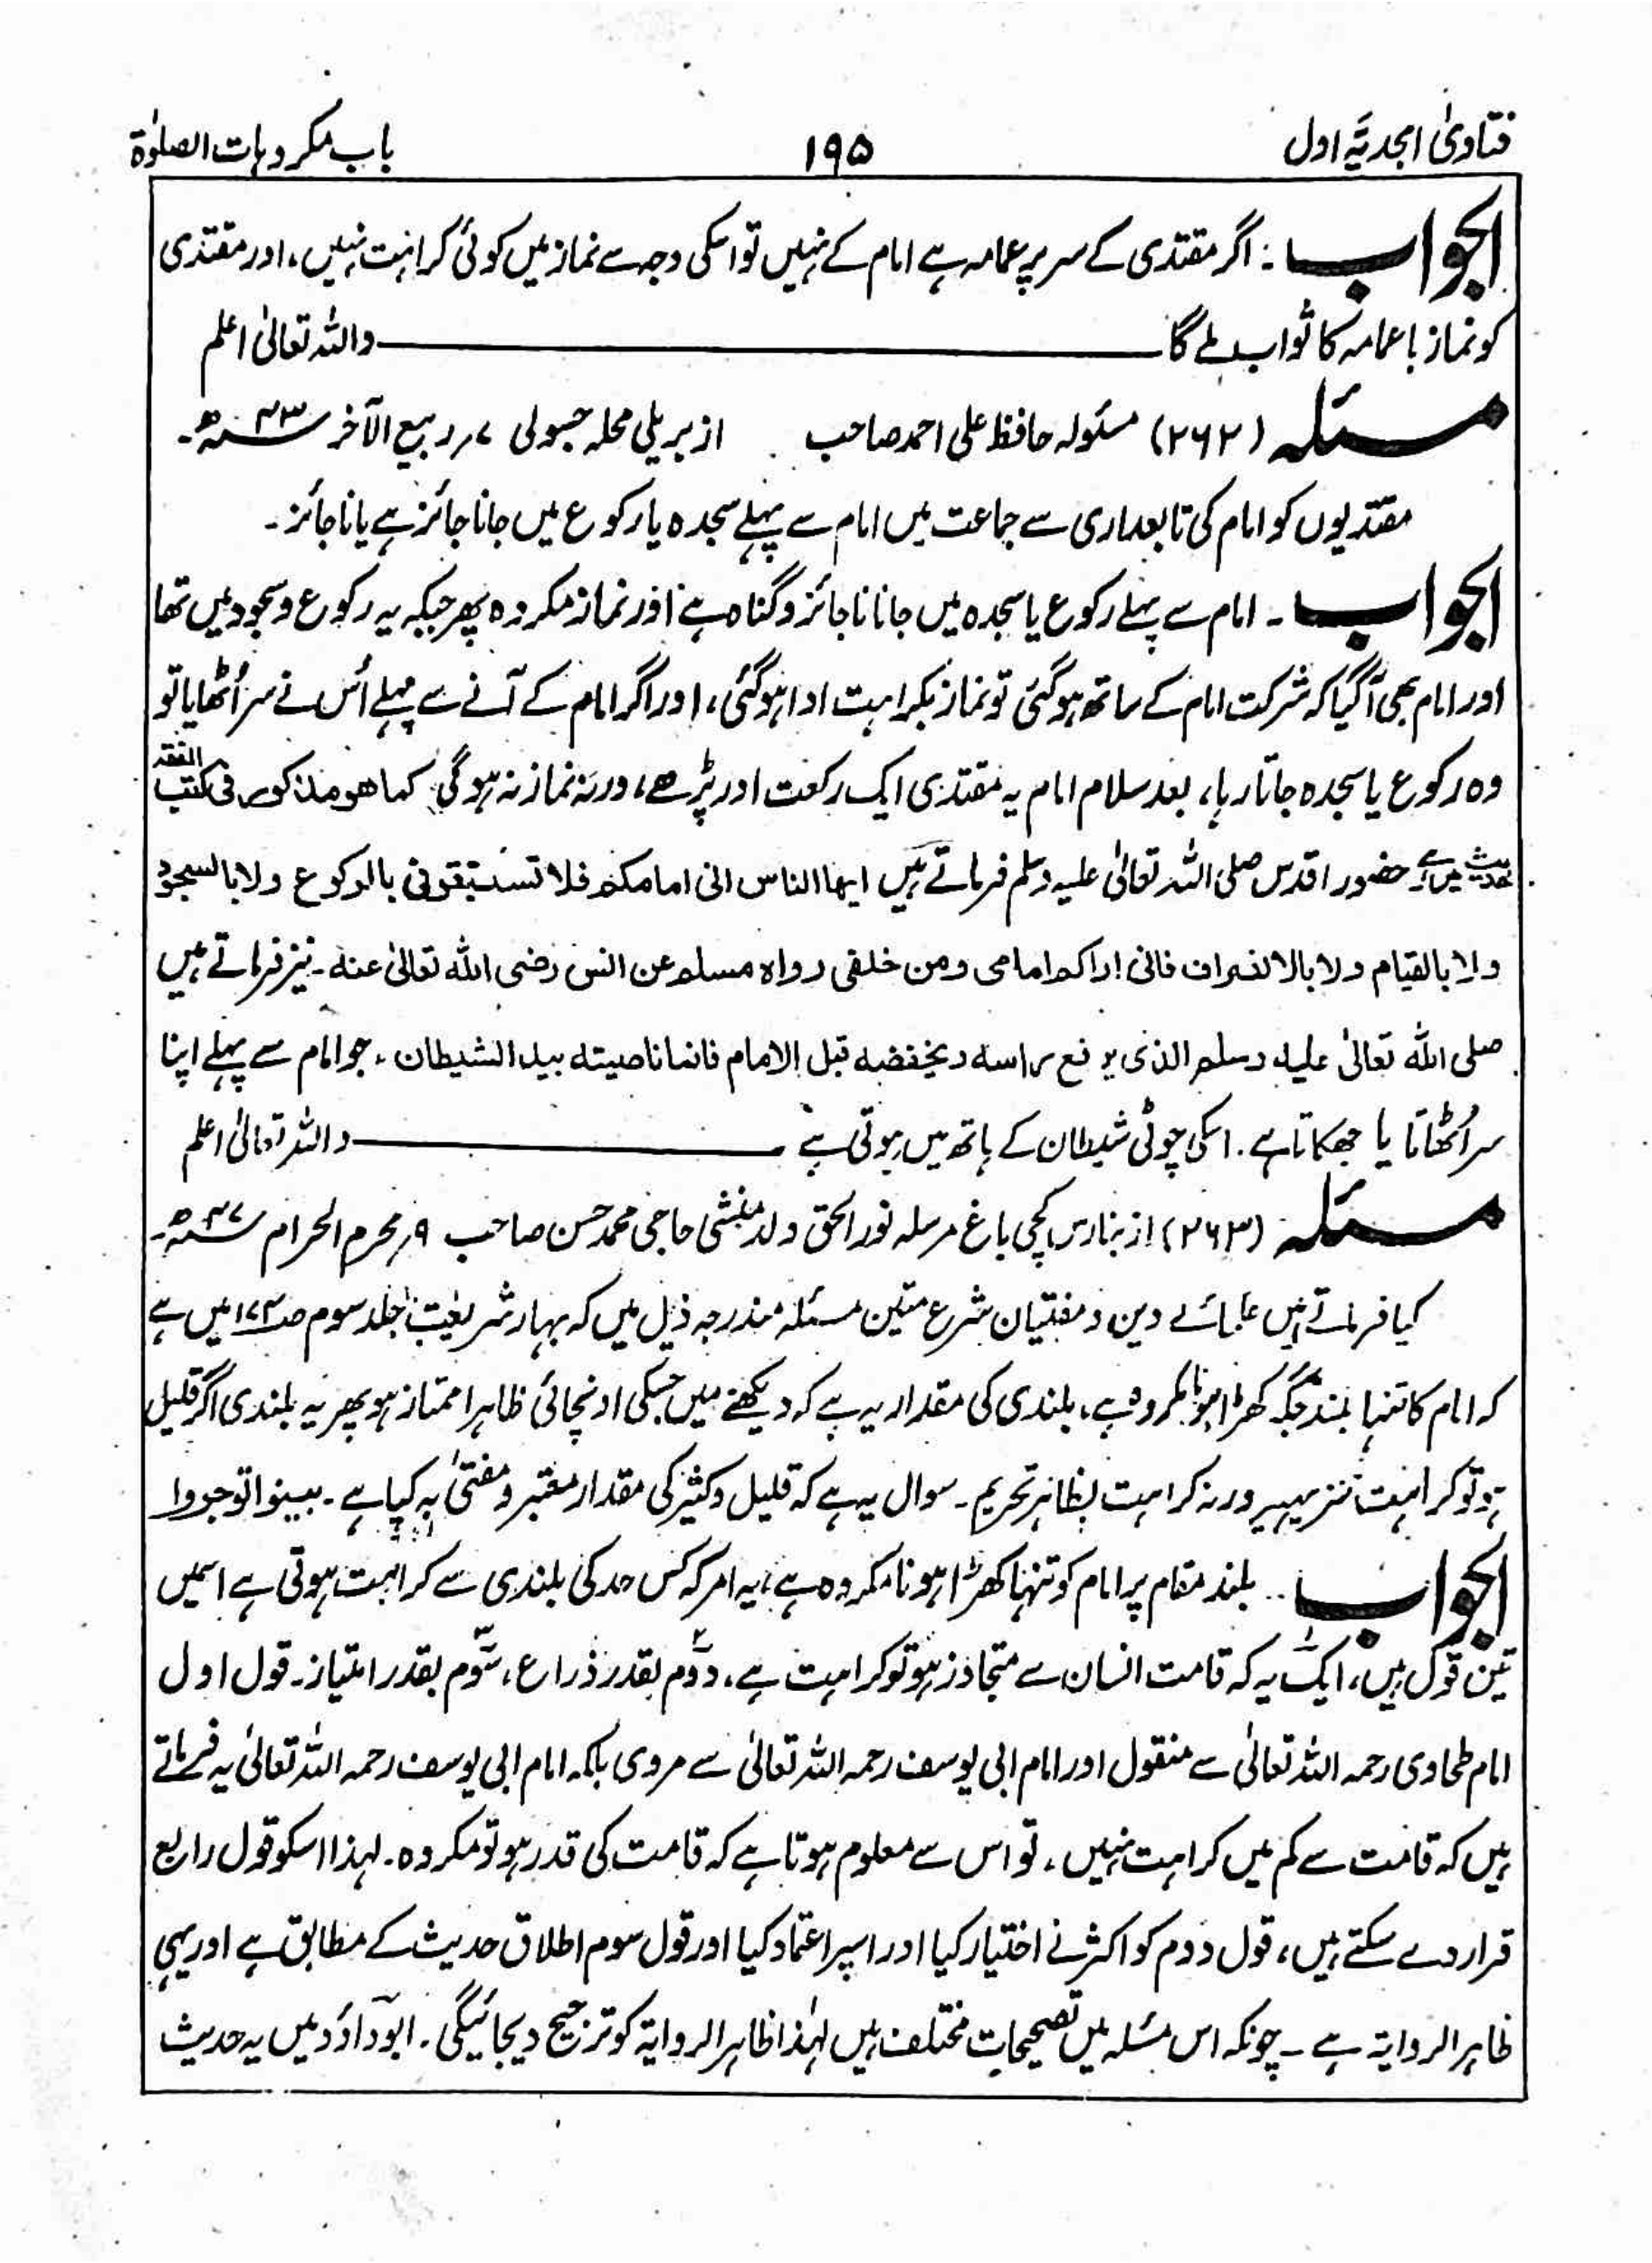 فتاویٰ امجدیہ اول
۱۹۵
باب مکروہات الصلوٰۃ
الجواب :۔ اگر مقتدی کے سر پر عمامہ ہے امام کے نہیں تو اسکی وجہ سے نماز میں کوئی کراہت نہیں، اور مقتدی
کو نماز باعمامہ کا ثواب ملے گا ـــــــــ واللہ تعالیٰ اعلم
مسئلہ (۲۶۲) مسئولہ حافظ علی احمد صاحب از بریلی محلہ جسولی ۷ ربیع الآخر ۴۳ھ۔
مقتدیوں کو امام کی تابعداری سے جماعت میں امام سے پہلے سجدہ یا رکوع میں جانا جائز ہے یا ناجائز۔
الجواب ۔ امام سے پہلے رکوع یا سجدہ میں جانا ناجائز و گناہ ہے اور نماز مکروہ پھر جبکہ یہ رکوع و سجود میں تھا
اور امام بھی آگیا کہ شرکت امام کے ساتھ ہوگئی تو نماز بکراہت ادا ہوگئی، اور اگر امام کے آنے سے پہلے اُس نے سر اُٹھایا تو
وہ رکوع یا سجدہ جاتا رہا، بعد سلام امام یہ مقتدی ایک رکعت اور پڑھے، ورنہ نماز نہ ہوگی کما ھو مذکور فی کتب الفقہ
حدیث میں ہے حضور اقدس صلی اللہ تعالیٰ علیہ وسلم فرماتے ہیں ایھا الناس انی امامکم فلا تستبقونی بالرکوع ولا بالسجود
ولا بالقیام ولا بالانصراف فانی اراکم امامی ومن خلفی رواہ مسلم عن انس رضی اللہ تعالیٰ عنہ۔ نیز فرماتے ہیں
صلی اللہ تعالیٰ علیہ وسلم الذی یرفع راسہ ویخفضہ قبل الامام فانما ناصیتہ بید الشیطان۔ جو امام سے پہلے اپنا
سر اُٹھاتا یا جھکاتا ہے۔ اسکی چوٹی شیطان کے ہاتھ میں ہوتی ہے ـــــــــ واللہ تعالیٰ اعلم
مسئلہ (۲۶۳) از بنارس کچی باغ مرسلہ نور الحق ولد منشی حاجی محمد حسن صاحب ۹ محرم الحرام ۴۷ھ۔
کیا فرماتے ہیں علمائے دین و مفتیان شرع متین مسئلہ مندرجہ ذیل میں کہ بہار شریعت جلد سوم صـ۱۷۳ میں ہے
کہ امام کا تنہا بلند جگہ کھڑا ہونا مکروہ ہے، بلندی کی مقدار یہ ہے کہ دیکھنے میں جسکی اونچائی ظاہرا ممتاز ہو پھر یہ بلندی اگر قلیل
ہو تو کراہت تنزیہیہ ورنہ کراہت بظاہر تحریم۔ سوال یہ ہے کہ قلیل وکثیر کی مقدار معتبر و مفتیٰ بہ کیا ہے۔ بینوا توجروا
الجواب .. بلند مقام پر امام کو تنہا کھڑا ہونا مکروہ ہے، یہ امر کہ کس حد کی بلندی سے کراہت ہوتی ہے اسمیں
تین قول ہیں، ایک یہ کہ قامت انسان سے متجاوز ہو تو کراہت ہے، دوم بقدر ذراع، سوم بقدر امتیاز۔ قول اول
امام طحاوی رحمہ اللہ تعالیٰ سے منقول اور امام ابی یوسف رحمہ اللہ تعالیٰ سے مروی بلکہ امام ابی یوسف رحمہ اللہ تعالیٰ یہ فرماتے
ہیں کہ قامت سے کم میں کراہت نہیں۔ تو اس سے معلوم ہوتا ہے کہ قامت کی قدر ہو تو مکروہ۔ لہذا اسکو قول رابع
قرار دے سکتے ہیں، قول دوم کو اکثر نے اختیار کیا اور اسپر اعتماد کیا اور قول سوم اطلاق حدیث کے مطابق ہے اور یہی
ظاہر الروایۃ ہے۔ چونکہ اس مسئلہ میں تصحیحات مختلف ہیں لہٰذا ظاہر الروایۃ کو ترجیح دیجائیگی۔ ابوداؤد میں یہ حدیث